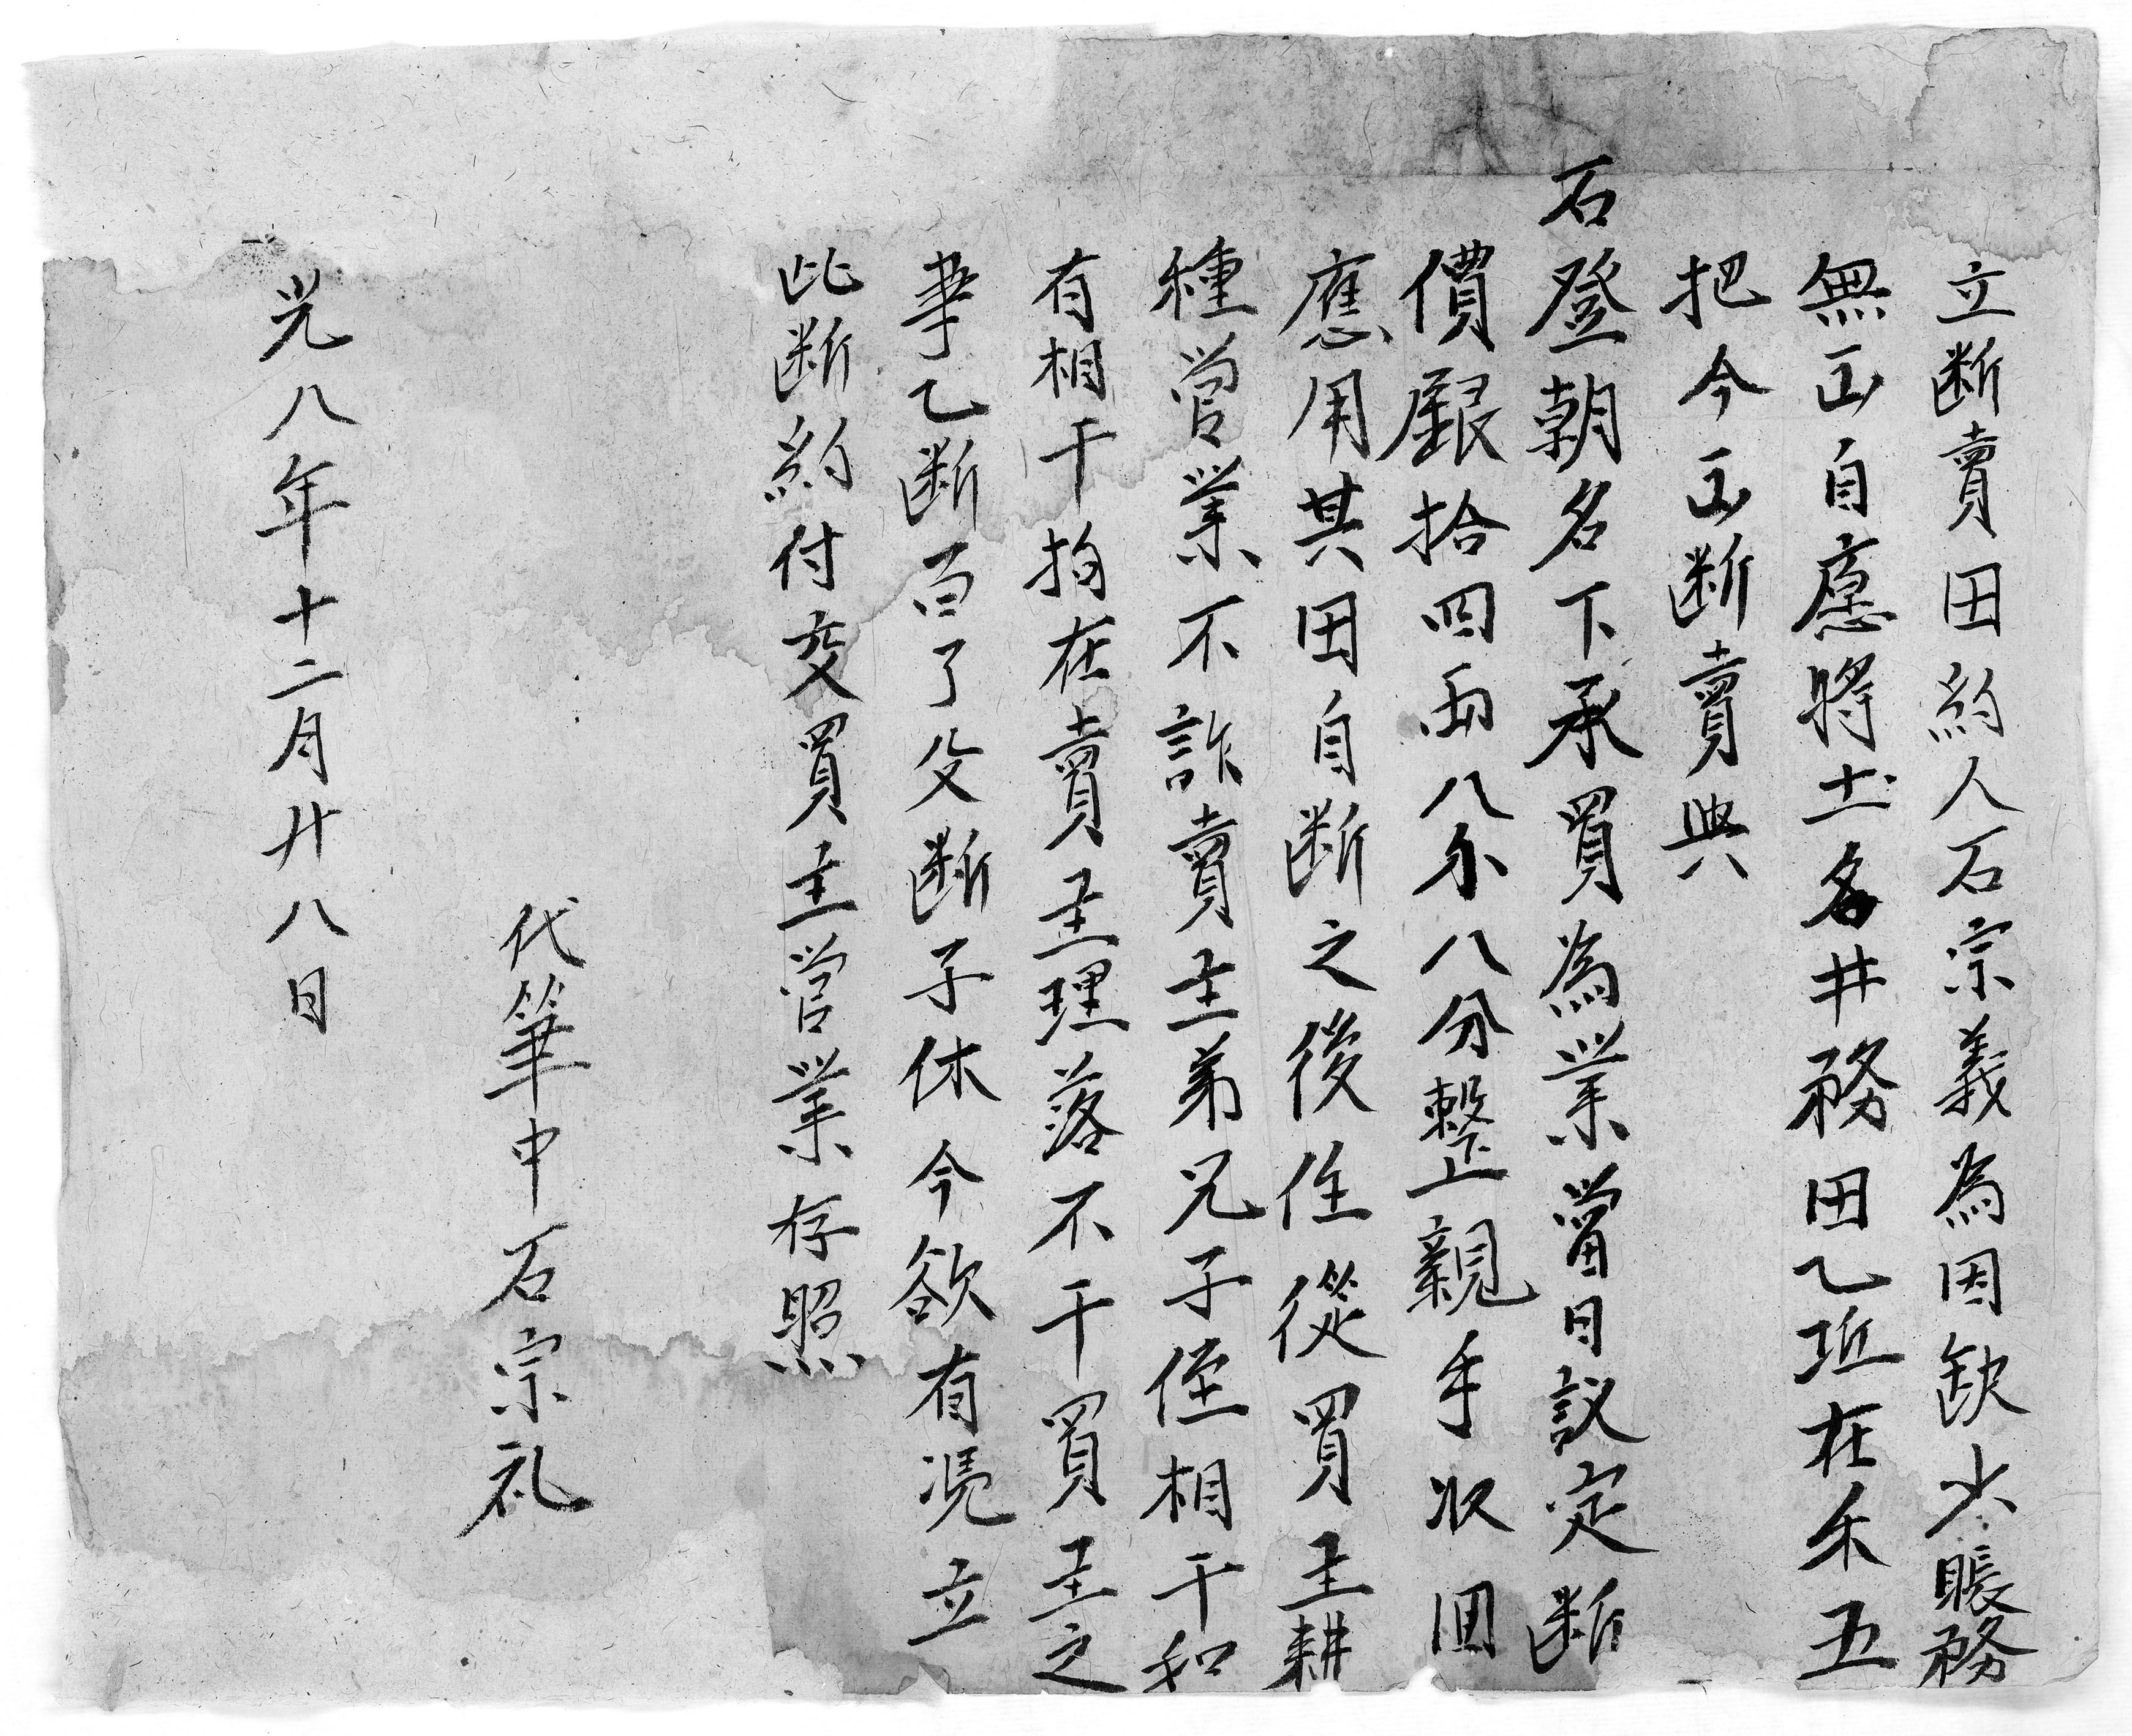 立断賣田約人石宗義為因缺少賬務
無出自愿將土名井務田乙坵在禾五
把今出断賣與
石登朝名下承買為業當日議定断
價銀拾四兩八个八分整親手收回
應用其田自断之後任從買主耕
種営業不許賣主弟兄子侄相干和
有相干拘在賣主理落不干買主之
事乙断百了父断子休今欲有凭立
此断約付交買主営業存照
代筆中石宗礼
光八年十二月廿八日